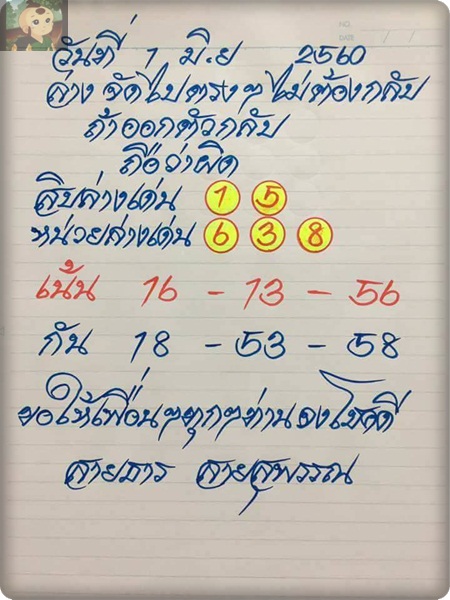 วันที่ 1 มิ.ย 2560
ล่าง จัดไปตรงๆ ไม่ต้องกลับ
ถ้าออกตัวกลับ
ถือว่าผิด
สิบล่างเด่น 1 5
หน่วยล่างเด่น 6 3 8
เน้น 16 - 13 - 56
กัน 18 - 53 - 58
ขอให้เพื่อนๆทุกๆท่านจงโชคดี
สายธาร สายสุพรรณ
NO.
DATE / /